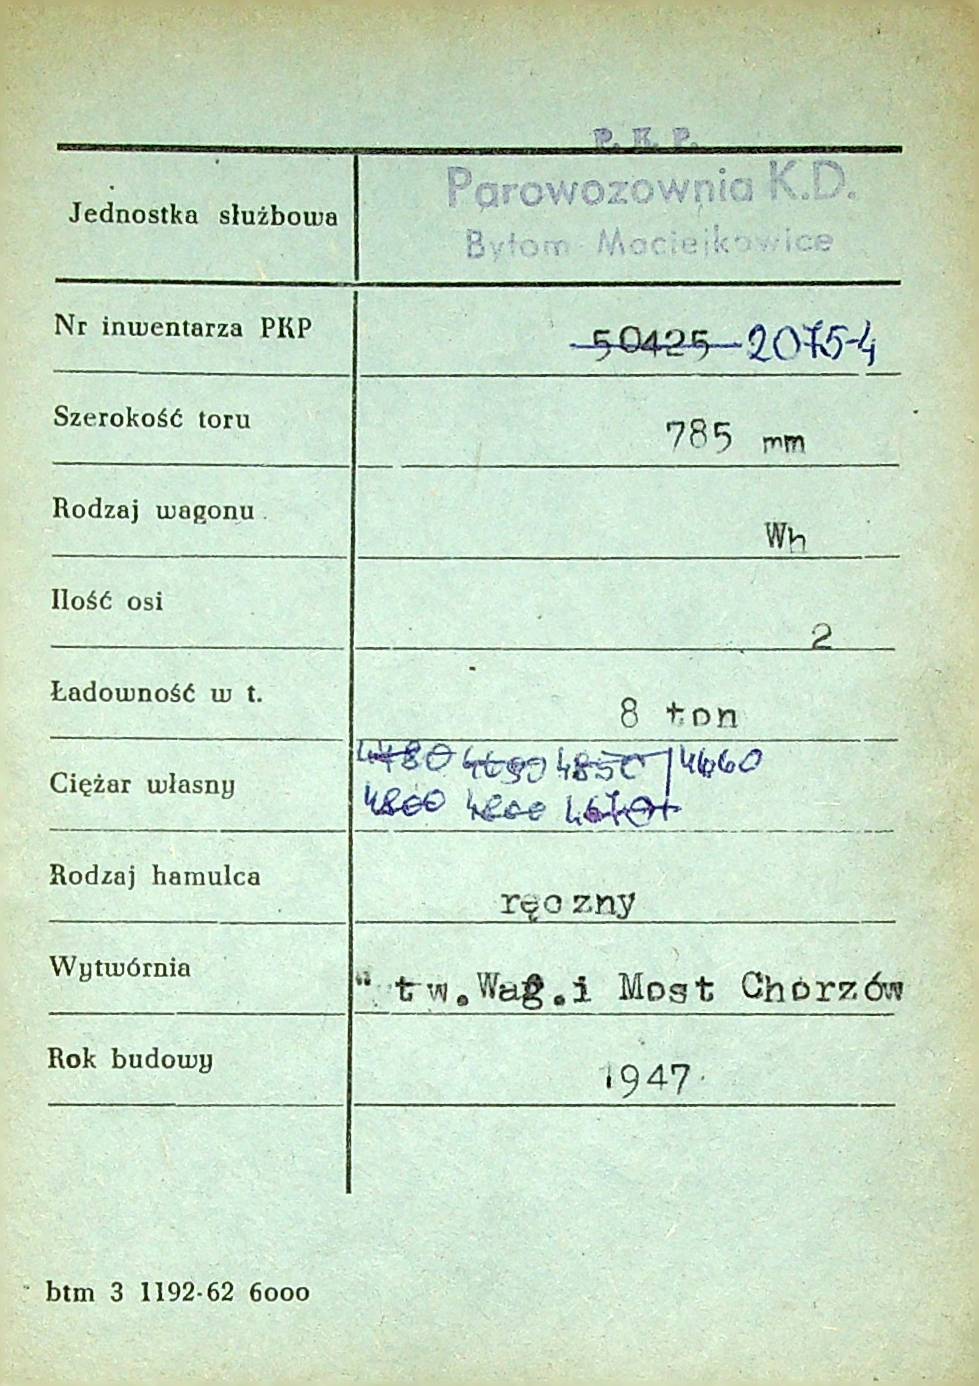 P. K. P.
Jednostka służbowa Parowozownia K.D.
Bytom Maciejkowice
Nr inwentarza PKP 50425 2075-4
Szerokość toru 785 mm
Rodzaj wagonu Wh
Ilość osi 2
Ładowność w t. 8 ton
4480 4690 4850 4660
Ciężar własny 4800 4800 4670
Rodzaj hamulca ręczny
Wytwórnia tw.Wag.i Most Chorzów
Rok budowy 1947
btm 3 1192-62 6000